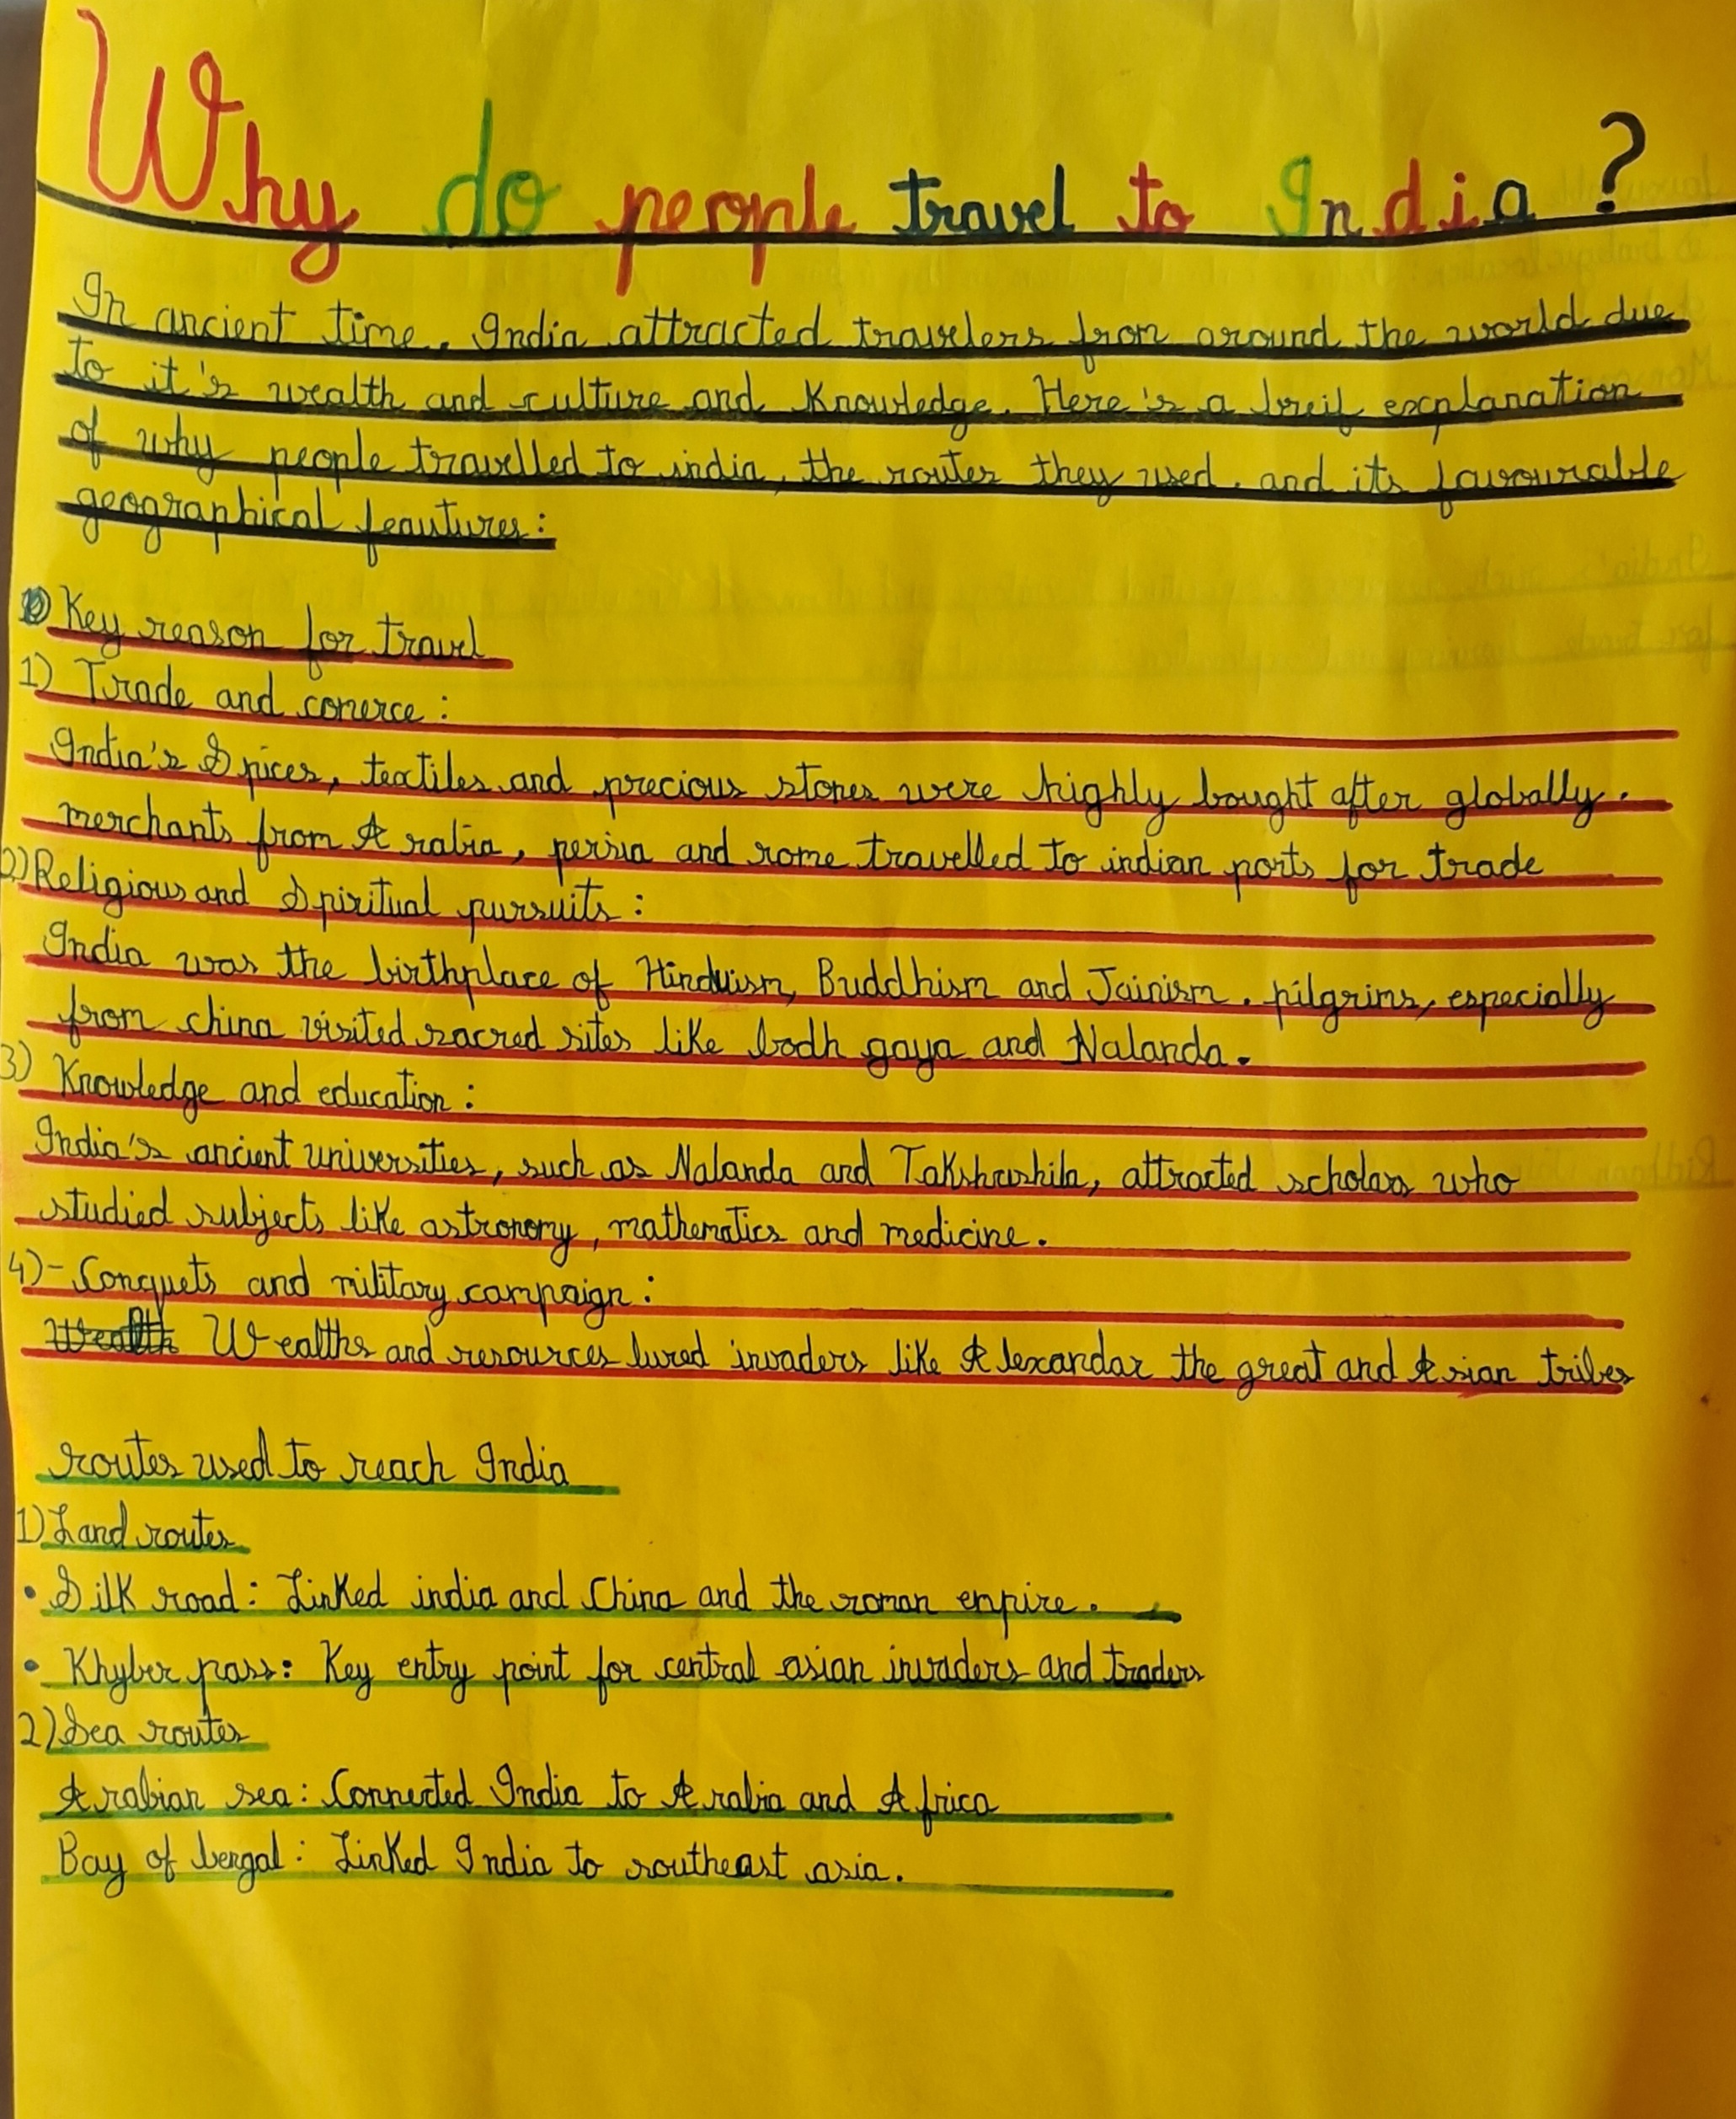 Why do people travel to India ?
In ancient time, India attracted travelers from around the world due
to it's wealth and culture and Knowledge. Here's a breif explanation
of why people travelled to india, the routes they used, and its favourable
geographical feautures:
Key reason for travel
1) Trade and conerce :
India's Spices, textiles and precious stones were highly bought after globally.
merchants from Arabia, persia and rome travelled to indian ports for trade
2) Religious and Spiritual pursuits :
India was the birthplace of Hinduism, Buddhism and Jainism. pilgrims, especially
from china visited sacred sites like bodh gaya and Nalanda.
3) Knowledge and education :
India's ancient universities, such as Nalanda and Takshashila, attracted scholars who
studied subjects like astronomy, mathematics and medicine.
4)- Conquets and military campaign :
Wealths and resources lured invaders like Alexandar the great and Asian tribes
routes used to reach India
1) Land routes
• Silk road : Linked india and China and the roman empire.
• Khyber pass : Key entry point for central asian invaders and traders
2) Sea routes
Arabian sea : Connected India to Arabia and Africa
Bay of bengal : Linked India to southeast asia.